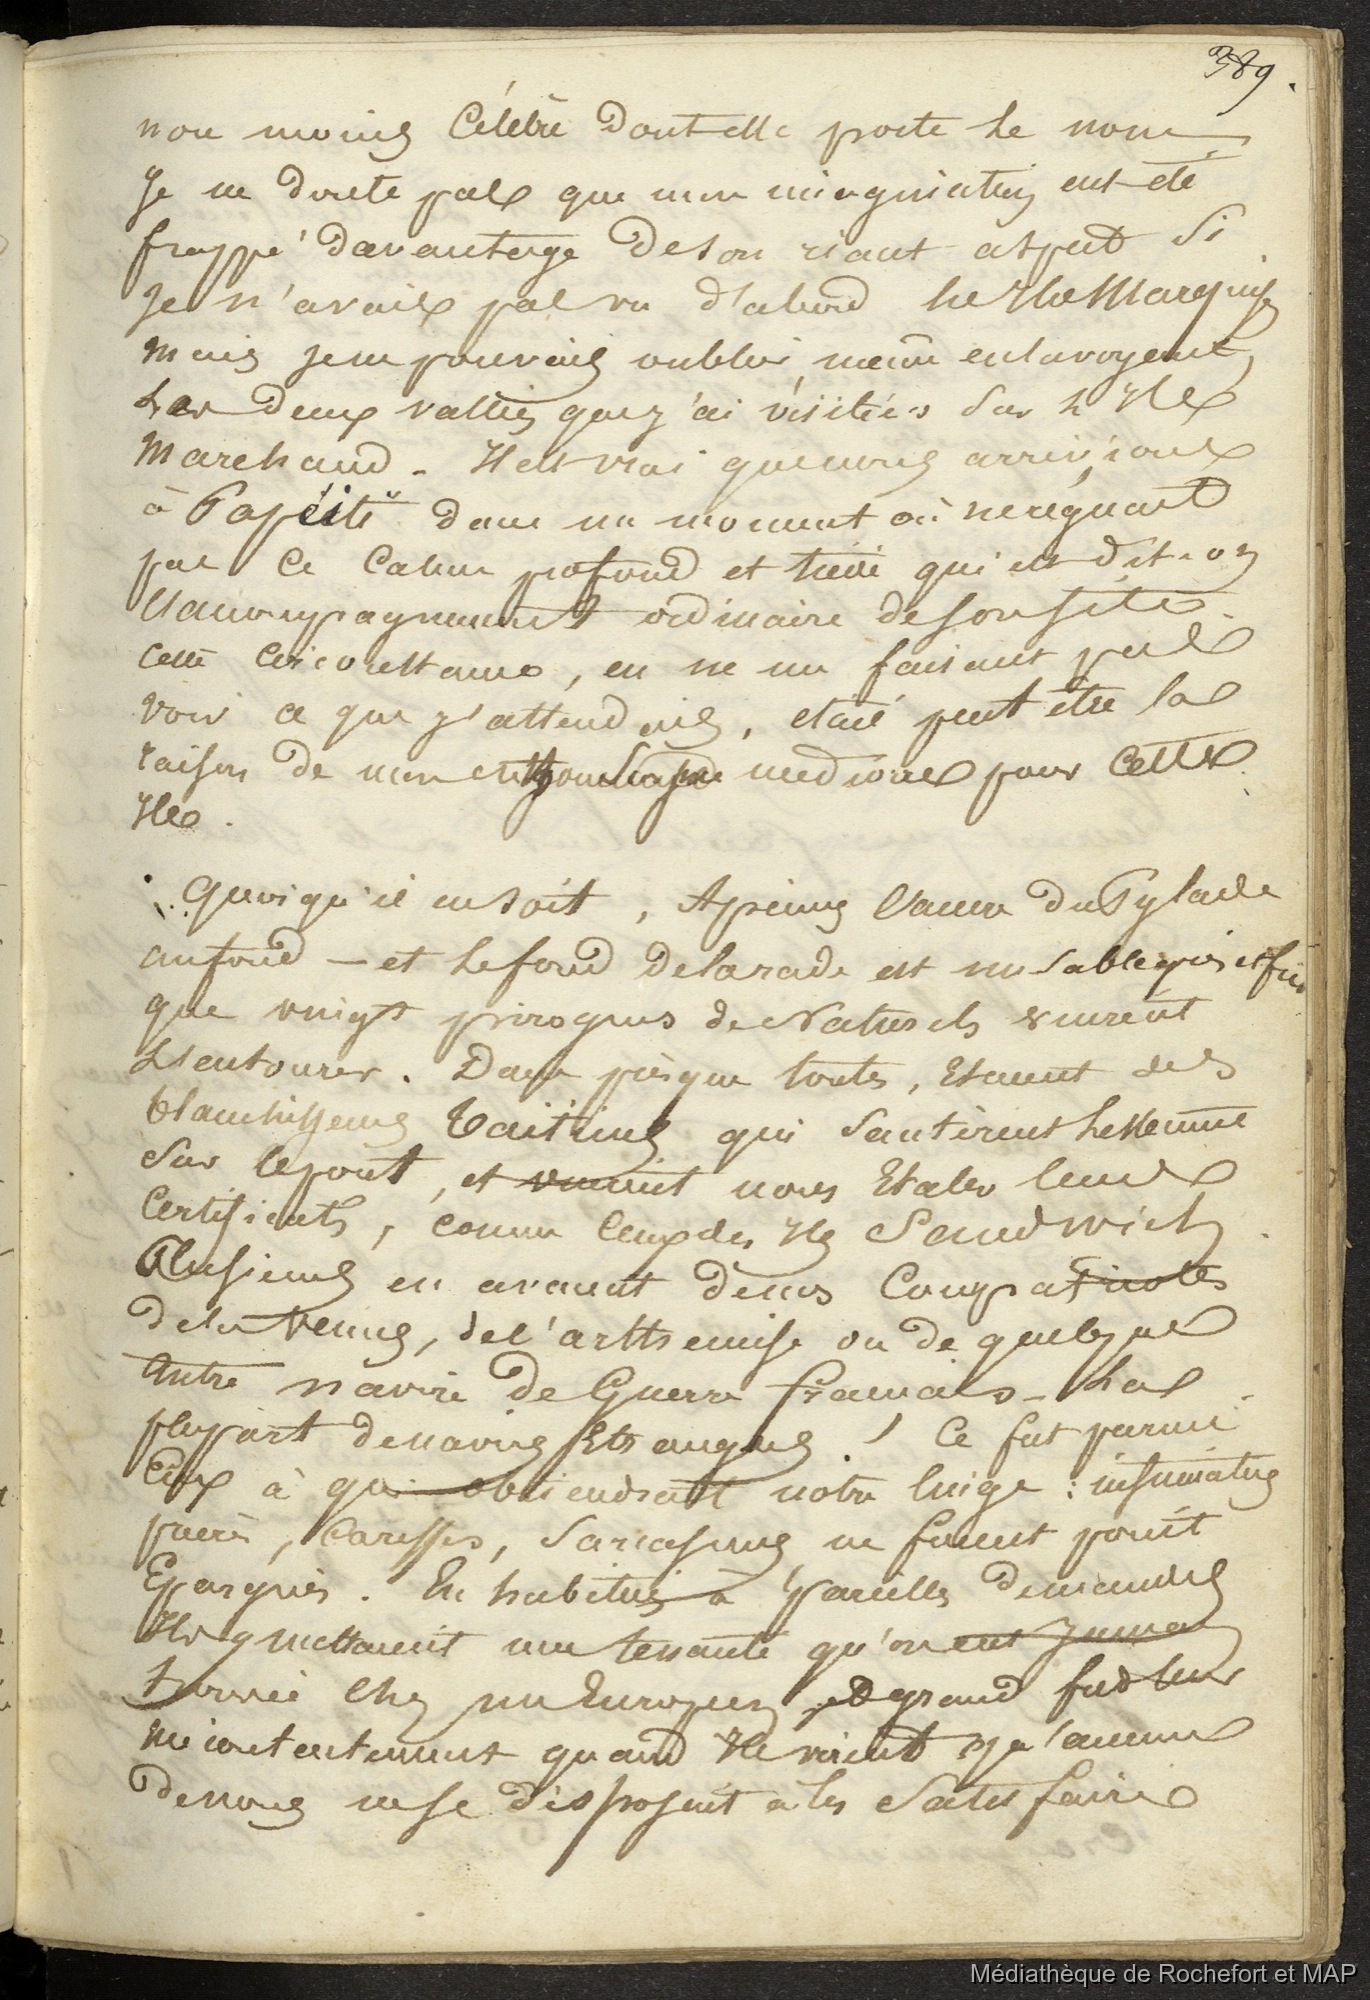 389.
non moins Célèbre dont elle porte le nom
Je ne doute pas que mon imagination eut été
frappé davantage de son riant aspect si
Je n'avais pas vu d'abord les Iles Marquises
mais je ne pouvais oublier, même en la voyant,
les deux vallées que j'ai visitées sur l'Ile
Marchand - Il est vrai que nous arrivions
à Papéiti dans un moment où ne régnait
pas ce calme profond et tiède qui est dit-on
l'accompagnement ordinaire de son site.
Cette circonstance, en ne me faisant pas
voir ce que j'attendais, etait peut être la
raison de mon enthousiasme médiocre pour cette
Ile.
Quoiqu'il en soit, Apeine l'ancre du Pylade
au fond - et le fond de la rade est un sable gris et fin
que vingt pirogues de Naturels vinrent
L'entourer. Dans presque toutes, Etaient des
blanchisseurs Taïtiens qui sautèrent lestement
sur le pont, et vinrent nous Etaler leurs
Certificats, comme ceux des Iles Sandwich.
Plusieurs en avaient de nos Compatriotes
de la Venus, de l'arthemise ou de quelque
autre navire de Guerre français - La
plupart de navires Etrangers. ! Ce fut parmi
Eux à qui obtiendrait notre linge :
prière, Caresses, Sarcasmes, ne furent point
Epargnés. En habitués à pareilles demandes
Ils y mettaient une tenacité qu'on eut
trouvée chez un Européen, et grand fut leur
mécontentement quand Ils virent que l'aucun
de nous ne se disposait à les Satisfaire